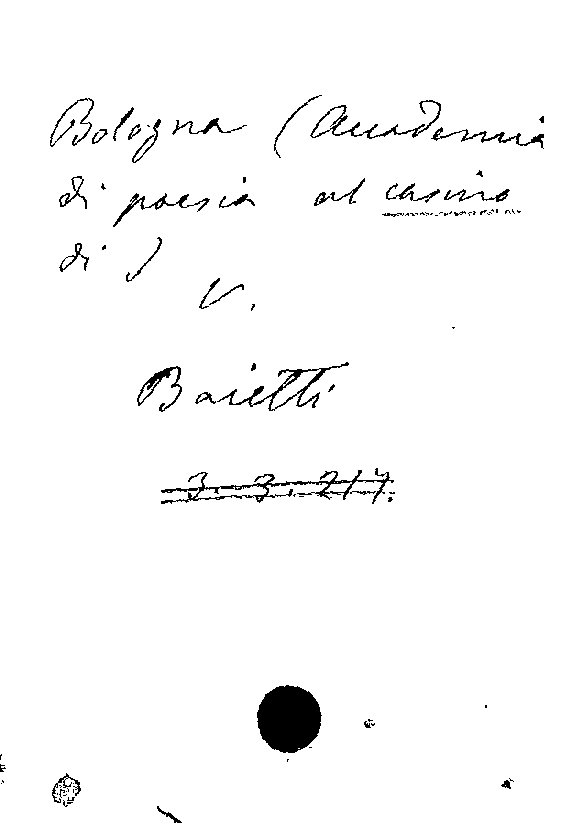 Bologna (Accademia
di poesia al casino
di )
V.
Baietti
3. 3. 217.